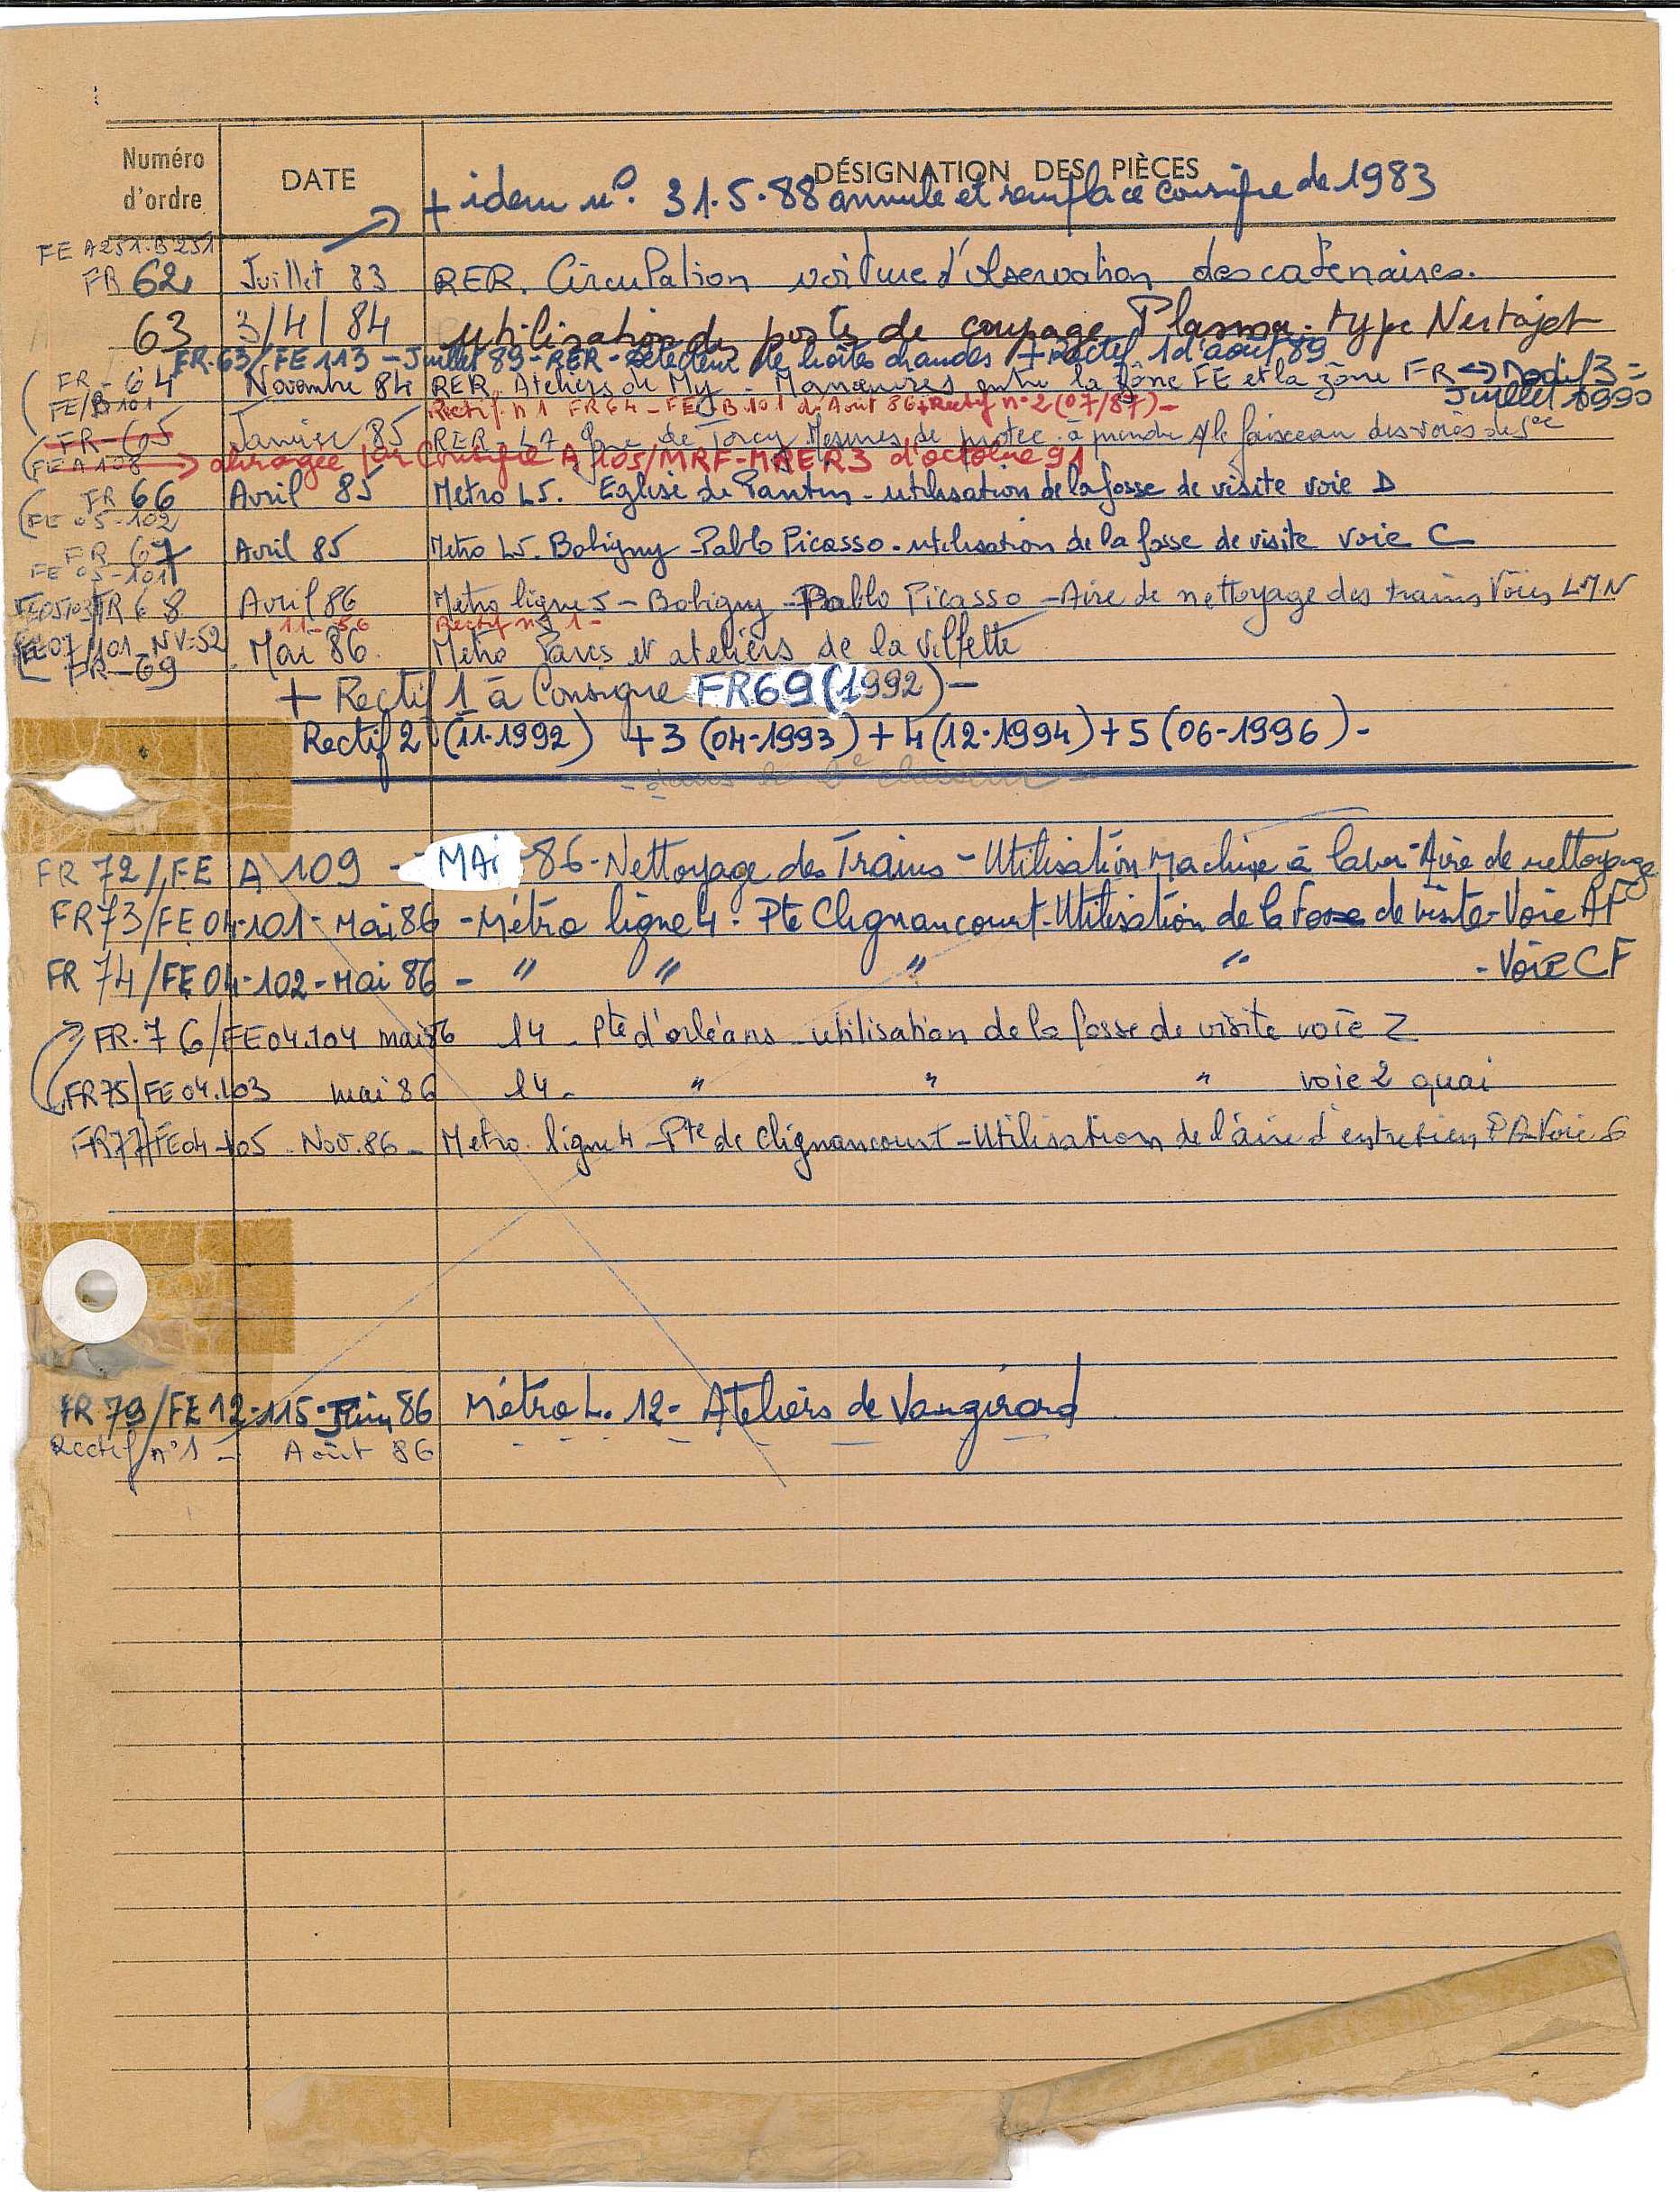 Numéro d'ordre DATE DÉSIGNATION DES PIÈCES
+ idem n°. 31.5.88 annule et remplace consigne de 1983
FE A251.B251
FR 62 Juillet 83 RER. Circulation voiture d'observation des catenaires.
63 3/4/84 utilisation du poste de coupage Plasma. type Nertajet
FR.63/FE 113 - Juillet 89 - RER - Détecteur de boîtes chaudes + Rectif 1 d'août 89
FR-64 Novembre 84 RER Ateliers de My - Manoeuvres entre la zône FE et la zône FR ↔ Modif 3 =
FE/B101 Juillet 1990
Rectif. n°1 FR64 - FE B.101 d'Août 86 + Rectif n°2 (07/87) -
FR-65 Janvier 85 RER - LA Gare de Torcy Mesures de protec. à prendre s/le faisceau des voies de
FE A 108 → abrogée par Consigne A 105/MRF-MRER3 d'octobre 91
FR 66 Avril 85 Metro L5. Eglise de Pantin - utilisation de la fosse de visite voie D
FE 05-102
FR 67 Avril 85 Metro L5. Bobigny - Pablo Picasso - utilisation de la fosse de visite voie C
FE 05-101
FE05/103 FR 68 Avril 86 Metro ligne 5 - Bobigny - Pablo Picasso - Aire de nettoyage des trains Voies LMN
11-86 Rectif n° 1 -
FE07/101-NV=52 Mai 86 Métro Parcs et ateliers de la Villette
FR-69
+ Rectif 1 à Consigne FR69 (1992) -
Rectif 2 (11-1992) + 3 (04-1993) + 4 (12-1994) + 5 (06-1996) -
FR 72/FE A 109 - MAi 86 - Nettoyage des Trains - Utilisation Machine à laver - Aire de nettoyage
FR73/FE 04-101 - Mai 86 - Métro ligne 4 - Pte Clignancourt - Utilisation de la Fosse de visite - Voie AF
FR 74/FE 04-102 - Mai 86 - " " " " - Voie CF
FR.76/FE04.104 mai 86 l4 - Pte d'orléans - utilisation de la fosse de visite voie Z
FR75/FE 04.103 mai 86 l4 - " " " voie 2 quai
FR77/FE04-105 - Nov.86 - Metro ligne 4 - Pte de Clignancourt - Utilisation de l'aire d'entretien PA Voie 6
FR 79/FE 12-115 - Juin 86 Métro L. 12 - Ateliers de Vaugirard
Rectif n°1 - Août 86